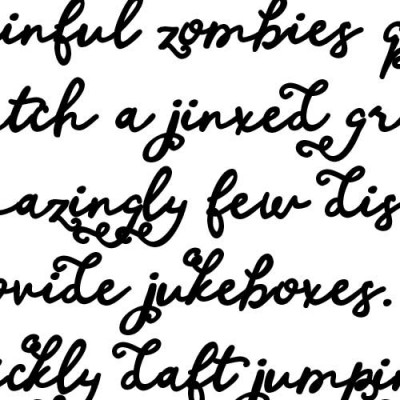 inful zombies q
tch a jinxed gr
azingly few dis
ovide jukeboxes.
ickly daft jumpin